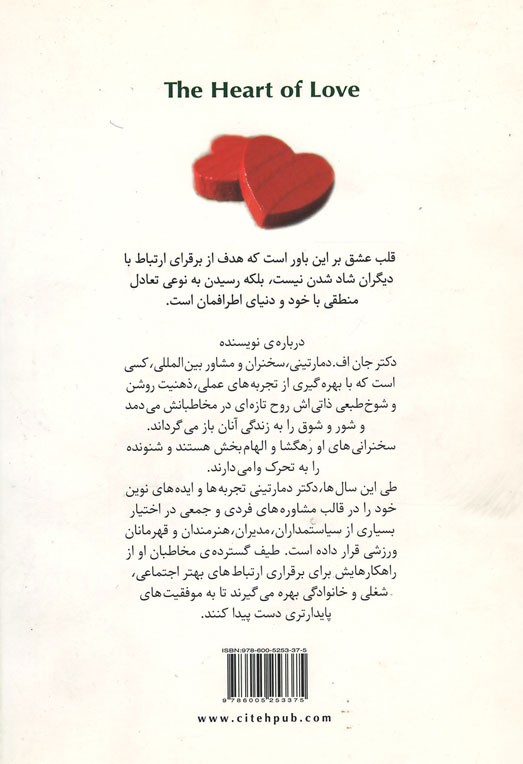 The Heart of Love
قلب عشق بر این باور است که هدف از برقرای ارتباط با
دیگران شاد شدن نیست، بلکه رسیدن به نوعی تعادل
منطقی با خود و دنیای اطرافمان است.
درباره‌ی نویسنده
دکتر جان اف.دمارتینی،سخنران و مشاور بین‌المللی،کسی
است که با بهره‌گیری از تجربه‌های عملی،ذهنیت روشن
و شوخ‌طبعی ذاتی‌اش روح تازه‌ای در مخاطبانش می‌دمد
و شور و شوق را به زندگی آنان باز می‌گرداند.
سخنرانی‌های او رهگشا و الهام‌بخش هستند و شنونده
را به تحرک وامی‌دارند.
طی این سال‌ها،دکتر دمارتینی تجربه‌ها و ایده‌های نوین
خود را در قالب مشاوره‌های فردی و جمعی در اختیار
بسیاری از سیاستمداران،مدیران،هنرمندان و قهرمانان
ورزشی قرار داده است. طیف گسترده‌ی مخاطبان او از
راهکارهایش برای برقراری ارتباط‌های بهتر اجتماعی،
شغلی و خانوادگی بهره می‌گیرند تا به موفقیت‌های
پایدارتری دست پیدا کنند.
ISBN:978-600-5253-37-5
9786005253375
www.citehpub.com